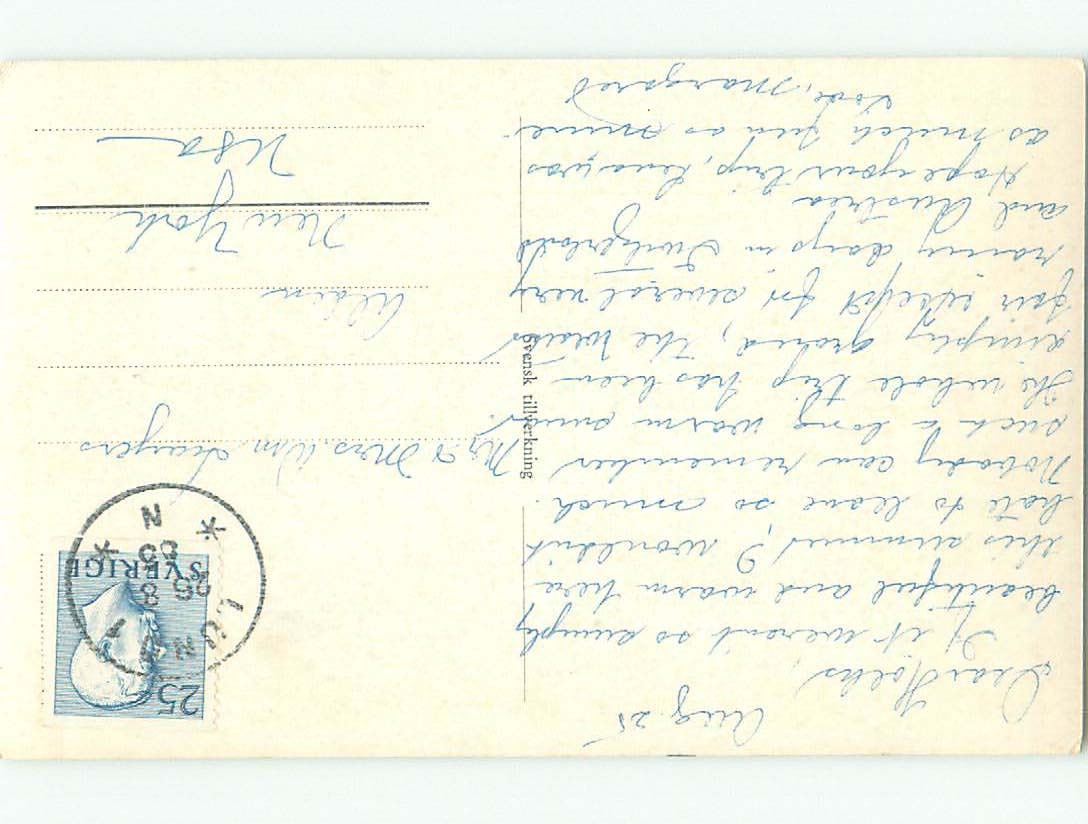 Aug. 25
Dear Folks,
If it weren't so simply
beautiful and warm here
this summer, I wouldn't
hate to leave so much.
Nobody can remember
such a long warm
The whole trip has been
simply grand, the weather
fair except for several very
rainy days in Switzerland
and Austria
Hope your trip, Lena, was
as much fun as mine
Love, Margaret
Svensk tillverkning
25
SVERIGE
LUND 1
25 8
N
Mr. & Mrs. Wm Sayers
Alden
New York
USA